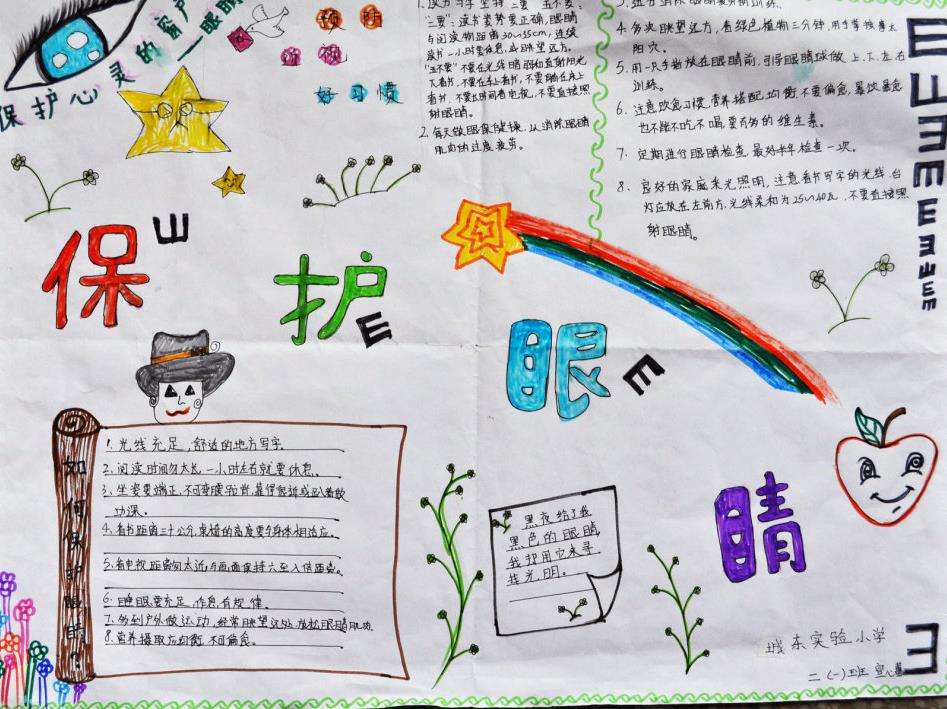 保护心灵的窗户
——眼睛
预 防
好习惯
"二要":读书姿势要正确,眼睛
与阅读物距离30~35cm,连续
读书一小时要休息,或眺望远方。
"五不要"不在光线暗弱和直射阳光
下看书,不要在车上看书,不要躺在床上
看书,不要长时间看电视,不要直接照
射眼睛。
2. 每天做眼保健操,以消除眼睛
肌肉的过度疲劳。
4. 多次眺望远方,看绿色植物三分钟,用手掌按摩太
阳穴。
5. 用一只手指放在眼睛前,引导眼睛球做上.下.左.右
训练。
6. 注意饮食习惯,营养搭配均衡.不要偏食,暴饮暴食
也不能不吃不喝,要多的维生素。
7. 定期进行眼睛检查,最好半年检查一次。
8. 良好的家庭采光照明,注意看书写字的光线.台
灯应放在左前方.光线柔和为25~40瓦.不要直接照
射眼睛。
保护眼睛
E
E
如何保护眼睛?
1. 光线充足,舒适的地方写字.
2. 阅读时间勿太长,一小时左右就要休息.
3. 坐姿要端正,不可弯腰驼背,靠得很近或趴着做
功课。
4. 看书距离三十公分,桌椅的高度要与身体相适应。
5. 看电视距离勿太近,与画面保持六至八倍距离。
6. 睡眠要充足,作息有规律。
7. 多到户外做运动,经常眺望远处,放松眼睛肌肉.
8. 营养摄取应均衡,不可偏食。
黑夜给了我
黑色的眼睛,
我却用它来寻
找光明。
城东实验小学
二(一)班